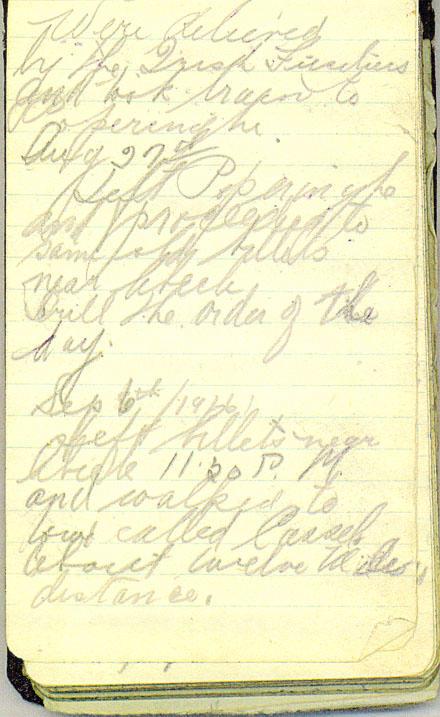 Were relieved
by the Irish Fusiliers
and took train to
Poperinghe
Aug 27th
Left Poperinghe
and proceeded to
same old billets
near
Drill the order of the
day.
Sep 6th 1916
Left billets near
11.30 P. M.
and walked to
town called Cassel
about twelve Miles
distance.